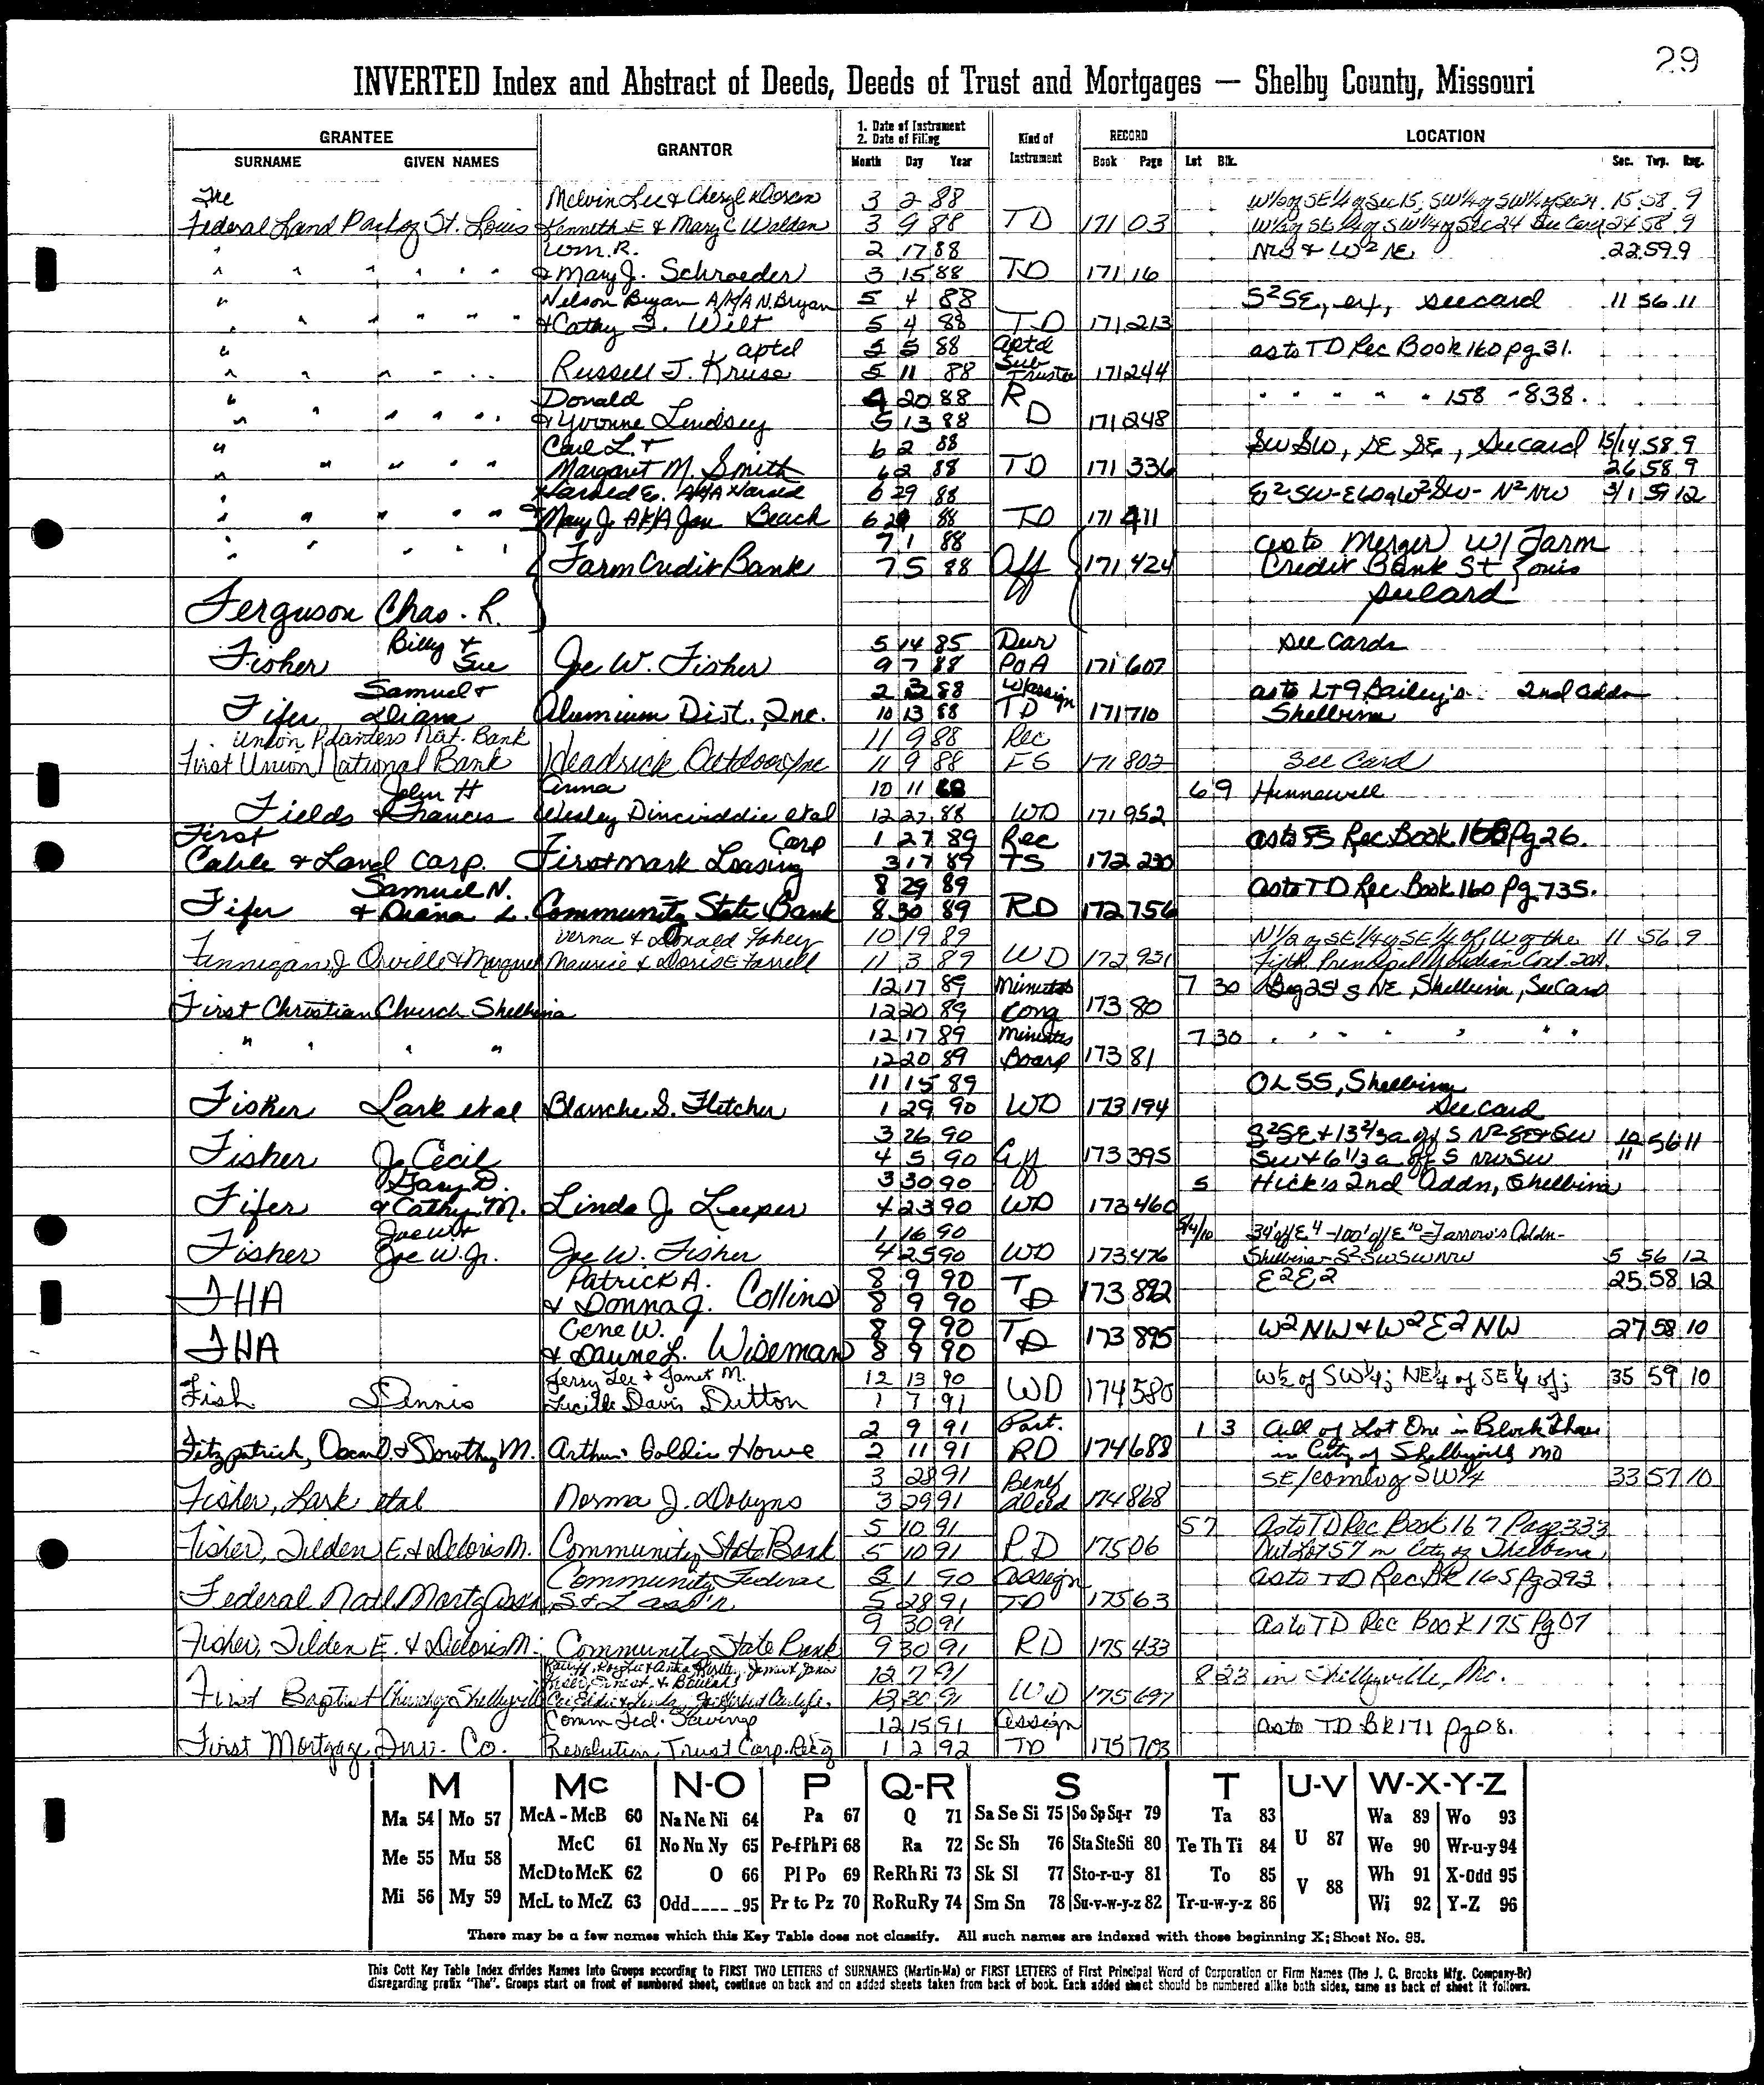 29
INVERTED Index and Abstract of Deeds, Deeds of Trust and Mortgages — Shelby County, Missouri
GRANTEE GRANTOR 1. Date of Instrument 2. Date of Filing Kind of Instrument RECORD LOCATION
SURNAME GIVEN NAMES Month Day Year Book Page Lot Blk. Sec. Twp. Rng.
The Melvin Lee & Cheryl 3 2 88 W½ of SE¼ of Sec 15, SW¼ of SW¼ of Sec 14 15 58 9
Federal Land of St. Louis Kenneth E & Mary C Walden 3 9 88 TD 171 03 W½ of SE¼ of SW¼ of Sec 24 See Card 24 58 9
" Wm. R. 2 17 88 & W² NE 22 59 9
" " " " " " & Mary J. Schroeder 3 15 88 TD 171 16
" Nelson Bryan A/K/A N. Bryan 5 4 88 S²SE, ex, see card 11 56 11
" " " " " & Cathy Wilt 5 4 88 TD 171 213
" aptd 5 5 88 Aptd as to TD Rec Book 160 pg 31.
" " " " " Russell J. Kruse 5 11 88 Sub Trustee 171 244
" Donald 4 20 88 R " " " " " 158 - 838.
" " " " " " & Yvonne Lindsey 5 13 88 D 171 248
" Carl L. & 6 2 88 SW SW, SE SE, See card 15/14 58 9
" " " " " Margaret M. Smith 6 2 88 TD 171 336 26 58 9
" Harold E. A/K/A Harold 6 29 88 E²SW-E60aW²SW-N²NW 3/1 59 12
" " " " " & Mary J. A/K/A Jan Beach 6 29 88 TD 171 411
" " " " " 7 1 88 as to Merger w/ Farm
Farm Credit Bank 7 5 88 Aff 171 424 Credit Bank St Louis
Ferguson Chas. L. see card
Billy & 5 14 85 Dur See Cards
Fisher Sue Joe W. Fisher 9 7 88 PoA 171 607
Samuel & 2 3 88 Assign as to LT 9 Bailey's 2nd addn
Fifer Diana Alumium Dist., Inc. 10 13 88 TD 171 710 Shelbina
Union Planters Nat. Bank 11 9 88 Rec
First Union National Bank Headrick Outdoor Inc 11 9 88 FS 171 802 See Card
John H Anna 10 11 88 6 9 Hunnewell
Fields & Frances Wesley et al 12 27 88 WD 171 952
First Corp 1 27 89 Rec as to FS Rec Book 168 Pg 26.
Cable & Land Corp. Firstmark Leasing 3 17 89 TS 172 230
Samuel N. 8 29 89 as to TD Rec Book 160 Pg 735.
Fifer & Diana L. Community State Bank 8 30 89 RD 172 756
Verna & Donald Fohey 10 19 89 N½ of SE¼ of SE¼ of W of the 11 56 9
Finnigan, J Orville & Margaret Maurice & Doris E Farrell 11 3 89 WD 172 931 Fifth Principal Meridian Cont. 20A
12 17 89 Minutes 7 30 Beg 25' S NE, Shelbina, See Card
First Christian Church Shelbina 12 20 89 Cong 173 80
" " " " 12 17 89 Minutes 7 30 " " " " " " "
12 20 89 Board 173 81
11 15 89 OL 55, Shelbina
Fisher Lark et al Blanche S. Fletcher 1 29 90 WD 173 194 See card
3 26 90 S²SE & 13 2/3 a off S N² SE & SW 10/11 56 11
Fisher J. Cecil 4 5 90 Aff 173 395 SW & 6 1/3 a off S NW SW
Gary D. 3 30 90 5 Hick's 2nd Addn, Shelbina
Fifer & Cathy M. Linda J. Leeper 4 23 90 WD 173 460
Joe W & 1 16 90 34' off E 4 - 100' off E 10 - Farrow's Addn-
Fisher Joe W. Jr. Joe W. Fisher 4 25 90 WD 173 476 Shelbina - S² SW SW NW 5 56 12
FHA Patrick A. 8 9 90 TD 173 892 E²E2 25 58 12
& Donna J. Collins 8 9 90
FHA Gene W. 8 9 90 TD 173 895 W2NW & W²E2NW 27 58 10
& Daune L. Wiseman 8 9 90
Jerry Lee & Janet M. 12 13 90 W½ of SW¼; NE¼ of SE¼ of; 35 59 10
Fish Dennis Lucille Davis Dutton 1 7 91 WD 174 580
2 9 91 Part. 1 3 All of Lot One in Block Three
Fitzpatrick, Oscar D. & Dorothy M. Arthur Goldie Howe 2 11 91 RD 174 688 in City of Shelbyville Mo
3 28 91 Benef SE/ of SW¼ 33 57 10
Fisher, Lark etal Norma J. Dobyns 3 29 91 Deed 174 868
5 10 91 57 As to TD Rec Book 167 Page 333
Fisher, Tilden E. & Deloris M. Community State Bank 5 10 91 RD 175 06 Out Lot 57 in City of Shelbina
Community Federal 5 1 90 Assign as to TD Rec BK 165 pg 293
Federal Natl Mortg Assn S & L ass'n 5 28 91 TD 175 63
9 30 91 as to TD Rec Book 175 Pg 07
Fisher, Tilden E. & Deloris M. Community State Bank 9 30 91 RD 175 433
12 7 91 8 23 in Shelbyville, Mo.
First Baptist Church of Shelbyville 12 30 91 WD 175 697
Comm Fed. Savings 12 15 91 Assign as to TD BK 171 pg 08.
First Mortgage Inv. Co. Resolution Trust Corp. Rec'g 1 2 92 TD 175 703
M Mc N-O P Q-R S T U-V W-X-Y-Z
Ma 54 Mo 57 McA - McB 60 Na Ne Ni 64 Pa 67 Q 71 Sa Se Si 75 So Sp Sq-r 79 Ta 83 U 87 Wa 89 Wo 93
Me 55 Mu 58 McC 61 No Nu Ny 65 Pe-f Ph Pi 68 Ra 72 Sc Sh 76 Sta Ste Sti 80 Te Th Ti 84 We 90 Wr-u-y 94
McD to McK 62 O 66 Pl Po 69 Re Rh Ri 73 Sk Sl 77 Sto-r-u-y 81 To 85 V 88 Wh 91 X-Odd 95
Mi 56 My 59 McL to McZ 63 Odd_____95 Pr to Pz 70 Ro Ru Ry 74 Sm Sn 78 Su-v-w-y-z 82 Tr-u-w-y-z 86 Wi 92 Y-Z 96
There may be a few names which this Key Table does not classify. All such names are indexed with those beginning X; Sheet No. 95.
This Cott Key Table Index divides Names into Groups according to FIRST TWO LETTERS of SURNAMES (Martin-Ma) or FIRST LETTERS of First Principal Word of Corporation or Firm Names (The J. C. Brooks Mfg. Company-Br)
disregarding prefix "The". Groups start on front of numbered sheet, continue on back and on added sheets taken from back of book. Each added sheet should be numbered alike both sides, same as back of sheet it follows.